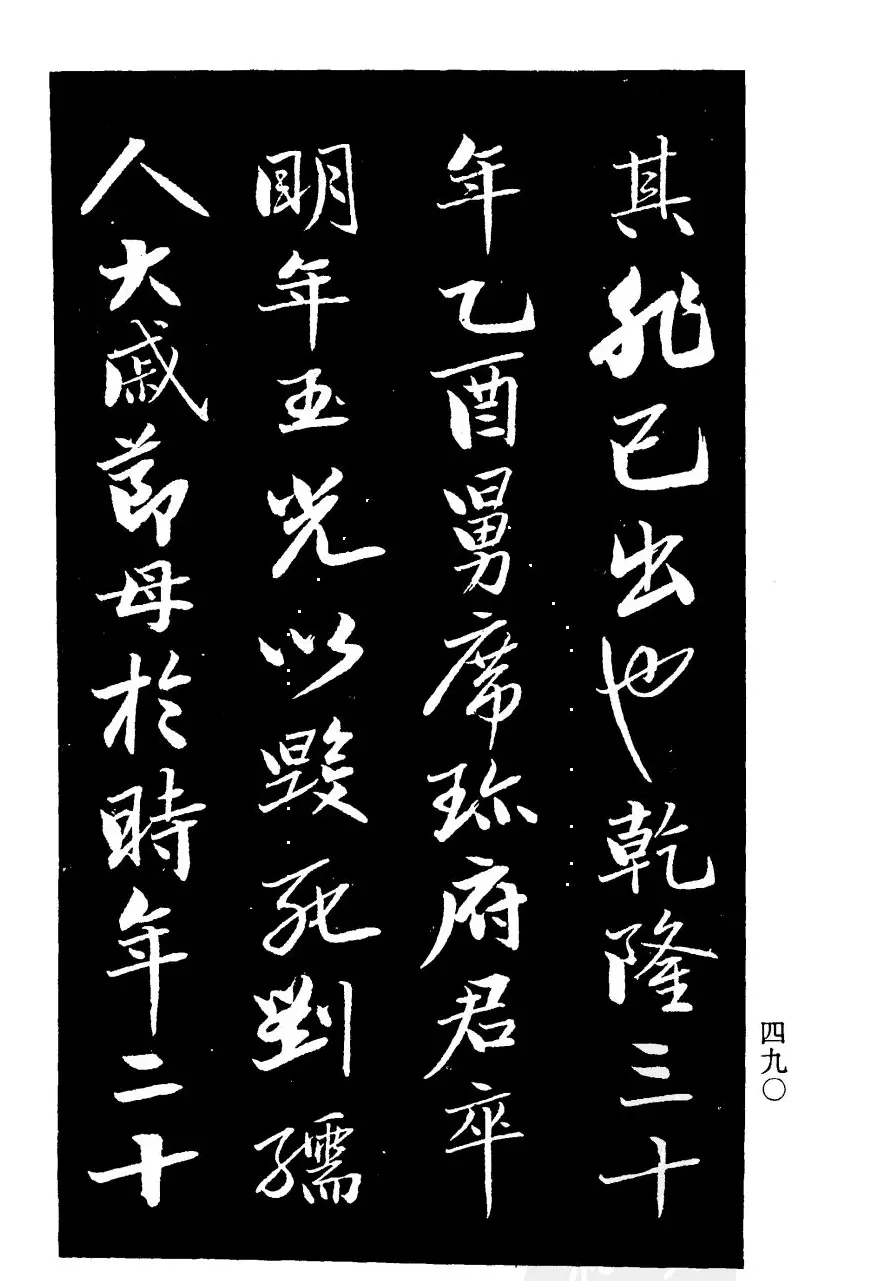 其非已出也乾隆三十
年乙酉舅席珍府君卒
明年玉光以毀死劉孺
人大戚節母於時年二十
四九〇